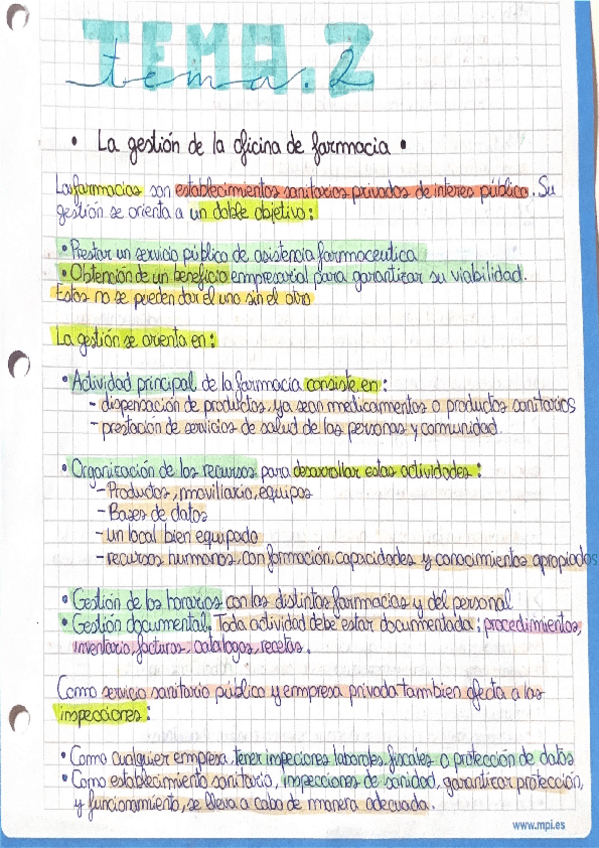 TEMA.2
tema.2
• La gestión de la oficina de farmacia •
Las farmacias son establecimientos sanitarios privados de interes público. Su
gestión se orienta a un doble objetivo:
• Prestar un servicio público de asistencia farmaceutica
• Obtención de un beneficio empresarial para garantizar su viabilidad.
Estos no se pueden dar el uno sin el otro
La gestión se orienta en:
• Actividad principal de la farmacia consiste en:
- dispensación de productos, ya sean medicamentos o productos sanitarios
- prestación de servicios de salud de las personas y comunidad.
• Organización de los recursos para desarrollar estas actividades:
- Productos, moviliario, equipos
- Bases de datos
- un local bien equipado
- recursos humanos, con formación, capacidades y conocimientos apropiados
• Gestión de los horarios con las distintas farmacias y del personal
• Gestión documental. Toda actividad debe estar documentada: procedimientos,
inventario, facturas, catálogos, recetas.
Como servicio sanitario público y emmpresa privada tambien afecta a las
inspecciones:
• Como cualquier empresa, tener inspeciones laborales, fiscales o protección de datos
• Como establecimiento sanitario, inspecciones de sanidad, garantizar protección,
y funcionamiento, se lleva a cabo de manera adecuada.
www.mpi.es